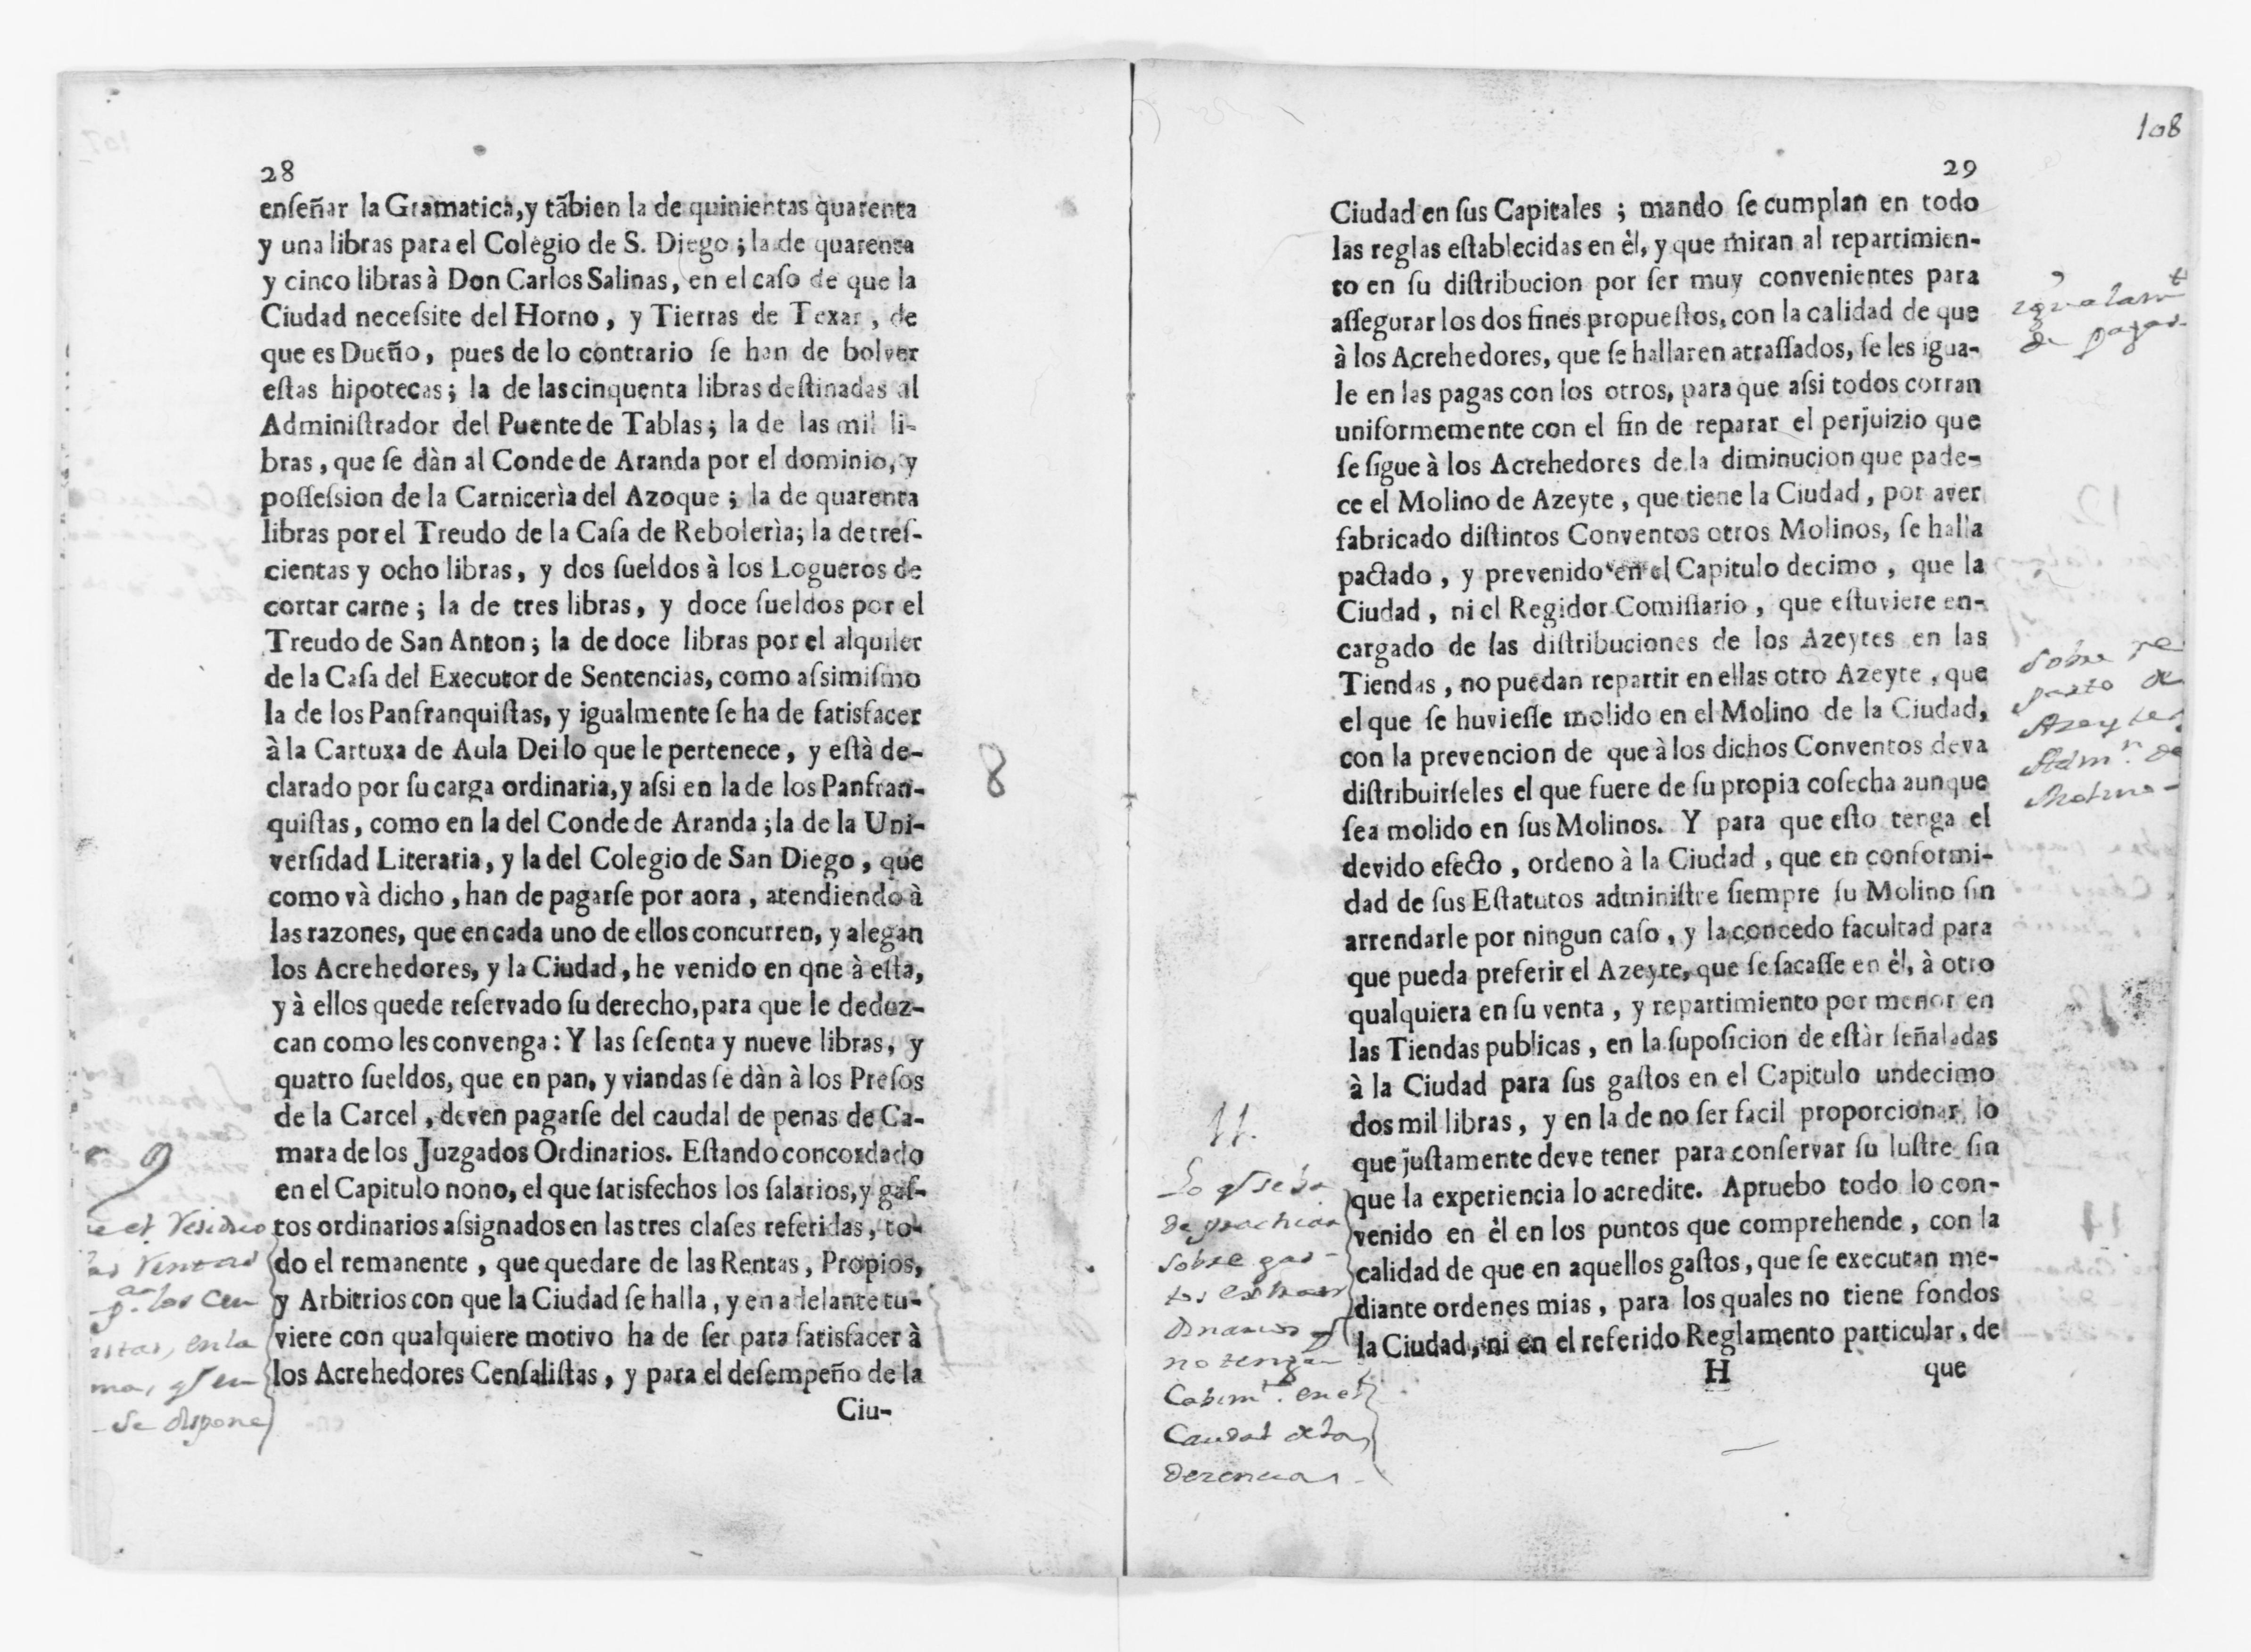 28
enſeñar la Gramatica, y tãbien la de quinientas quarenta
y una libras para el Colegio de S. Diego; la de quarenta
y cinco libras à Don Carlos Salinas, en el caſo de que la
Ciudad neceſsite del Horno, y Tierras de Texar, de
que es Dueño, pues de lo contrario ſe han de bolver
eſtas hipotecas; la de las cinquenta libras deſtinadas al
Adminiſtrador del Puente de Tablas; la de las mil li-
bras, que ſe dàn al Conde de Aranda por el dominio, y
poſſeſsion de la Carnicerìa del Azoque; la de quarenta
libras por el Treudo de la Caſa de Rebolerìa; la de treſ-
cientas y ocho libras, y dos ſueldos à los Logueros de
cortar carne; la de tres libras, y doce ſueldos por el
Treudo de San Anton; la de doce libras por el alquiler
de la Caſa del Executor de Sentencias, como aſsimiſmo
la de los Panfranquiſtas, y igualmente ſe ha de ſatisfacer
à la Cartuxa de Aula Dei lo que le pertenece, y eſtà de-
clarado por ſu carga ordinaria, y aſsi en la de los Panfran-
quiſtas, como en la del Conde de Aranda; la de la Uni-
verſidad Literaria, y la del Colegio de San Diego, que
como và dicho, han de pagarſe por aora, atendiendo à
las razones, que en cada uno de ellos concurren, y alegan
los Acrehedores, y la Ciudad, he venido en qne à eſta,
y à ellos quede reſervado ſu derecho, para que le deduz-
can como les convenga: Y las ſeſenta y nueve libras, y
quatro ſueldos, que en pan, y viandas ſe dàn à los Preſos
de la Carcel, deven pagarſe del caudal de penas de Ca-
mara de los Juzgados Ordinarios. Eſtando concordado
en el Capitulo nono, el que ſatisfechos los ſalarios, y gaſ-
tos ordinarios aſsignados en las tres claſes referidas, to-
do el remanente, que quedare de las Rentas, Propios,
y Arbitrios con que la Ciudad ſe halla, y en adelante tu-
viere con qualquiere motivo ha de ſer para ſatisfacer à
los Acrehedores Cenſaliſtas, y para el deſempeño de la
Ciu-
8
9
el Residuo
Rentas
los Cen
en la
Se dispone
108
29
Ciudad en ſus Capitales; mando ſe cumplan en todo
las reglas eſtablecidas en èl, y que miran al repartimien-
to en ſu diſtribucion por ſer muy convenientes para
aſſegurar los dos fines propueſtos, con la calidad de que
à los Acrehedores, que ſe hallaren atraſſados, ſe les igua-
le en las pagas con los otros, para que aſsi todos corran
uniformemente con el fin de reparar el perjuizio que
ſe ſigue à los Acrehedores de la diminucion que pade-
ce el Molino de Azeyte, que tiene la Ciudad, por aver
fabricado diſtintos Conventos otros Molinos, ſe halla
pactado, y prevenido en el Capitulo decimo, que la
Ciudad, ni el Regidor Comiſſario, que eſtuviere en-
cargado de las diſtribuciones de los Azeytes en las
Tiendas, no puedan repartir en ellas otro Azeyte, que
el que ſe huvieſſe molido en el Molino de la Ciudad,
con la prevencion de que à los dichos Conventos deva
diſtribuirſeles el que fuere de ſu propia coſecha aunque
ſea molido en ſus Molinos. Y para que eſto tenga el
devido efecto, ordeno à la Ciudad, que en conformi-
dad de ſus Eſtatutos adminiſtre ſiempre ſu Molino ſin
arrendarle por ningun caſo, y la concedo facultad para
que pueda preferir el Azeyte, que ſe ſacaſſe en èl, à otro
qualquiera en ſu venta, y repartimiento por menor en
las Tiendas publicas, en la ſupoſicion de eſtàr ſeñaladas
à la Ciudad para ſus gaſtos en el Capitulo undecimo
dos mil libras, y en la de no ſer facil proporcionar lo
que juſtamente deve tener para conſervar ſu luſtre ſin
que la experiencia lo acredite. Apruebo todo lo con-
venido en èl en los puntos que comprehende, con la
calidad de que en aquellos gaſtos, que ſe executan me-
diante ordenes mias, para los quales no tiene fondos
la Ciudad, ni en el referido Reglamento particular, de
H que
igualamt
de pagas
Sobre re
parto de
Azeytes
Admn. de
Molino
11.
sobre gas-
tos extraor
dinarios q
no tengan
Cabimto. en el
Caudal de la